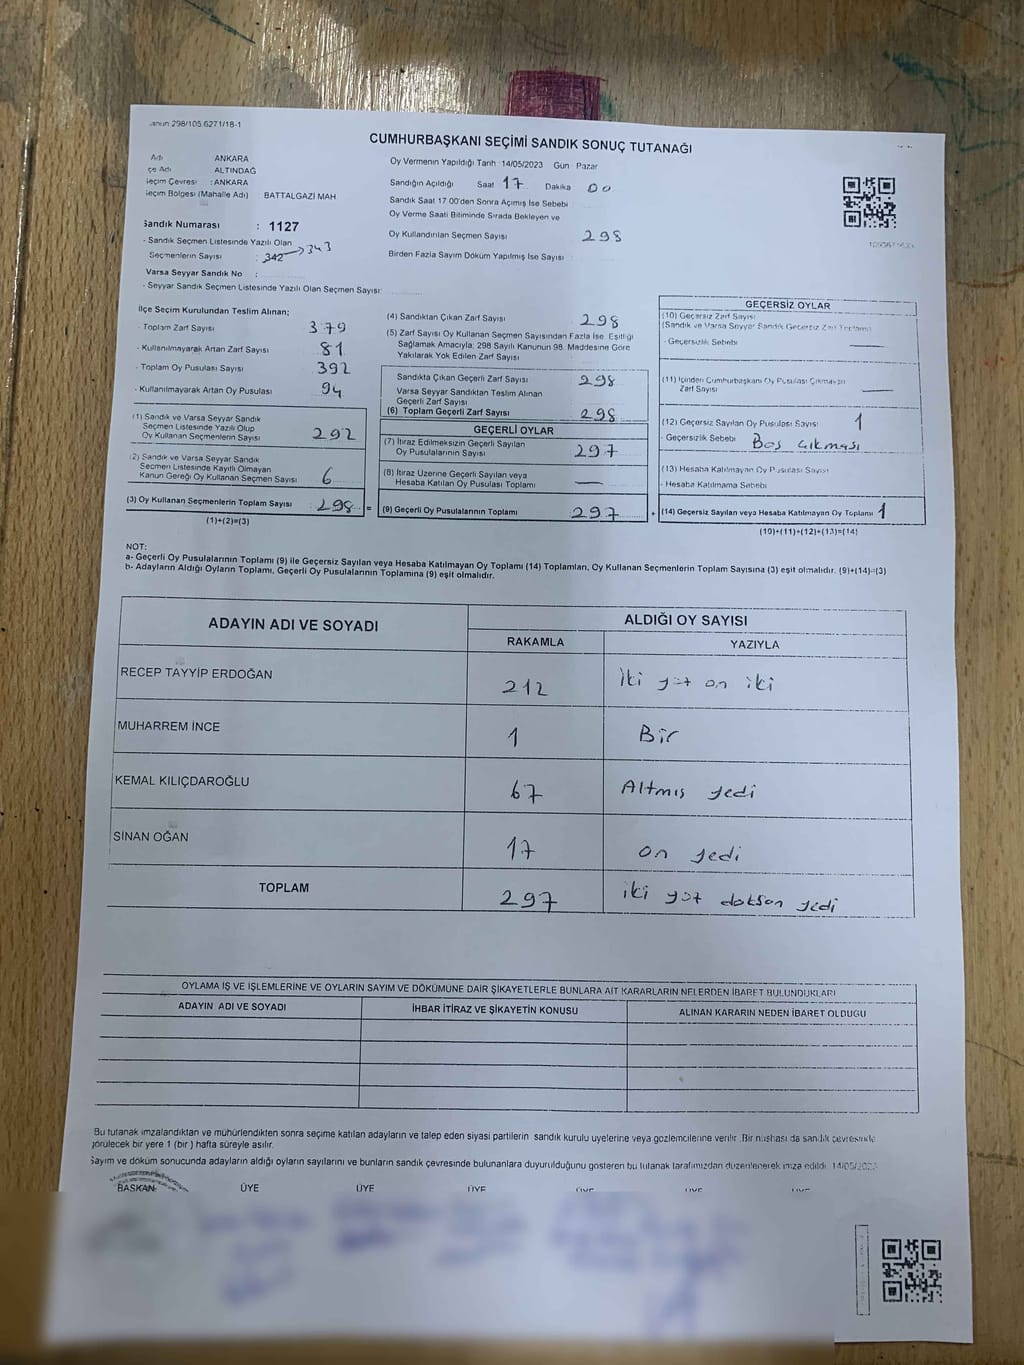 298/105 6271/18-1
CUMHURBAŞKANI SEÇİMİ SANDIK SONUÇ TUTANAĞI
Adı ANKARA
çe Adı ALTINDAĞ
Seçim Çevresi : ANKARA
Seçim Bölgesi (Mahalle Adı) BATTALGAZİ MAH
Sandık Numarası : 1127
- Sandık Seçmen Listesinde Yazılı Olan
Seçmenlerin Sayısı : 342 → 343
Varsa Seyyar Sandık No :
- Seyyar Sandık Seçmen Listesinde Yazılı Olan Seçmen Sayısı:
Oy Vermenin Yapıldığı Tarih 14/05/2023 Gün Pazar
Sandığın Açıldığı Saat 17 Dakika 00
Sandık Saat 17 00'den Sonra Açımış İse Sebebi
Oy Verme Saati Bitiminde Sırada Bekleyen ve
Oy Kullandırılan Seçmen Sayısı 298
Birden Fazla Sayım Döküm Yapılmış İse Sayısı
İlçe Seçim Kurulundan Teslim Alınan;
- Toplam Zarf Sayısı 379
- Kullanılmayarak Artan Zarf Sayısı 81
- Toplam Oy Pusulası Sayısı 392
- Kullanılmayarak Artan Oy Pusulası 94
(1) Sandık ve Varsa Seyyar Sandık
Seçmen Listesinde Yazılı Olup
Oy Kullanan Seçmenlerin Sayısı 292
(2) Sandık ve Varsa Seyyar Sandık
Seçmen Listesinde Kayıtlı Olmayan
Kanun Gereği Oy Kullanan Seçmen Sayısı 6
(3) Oy Kullanan Seçmenlerin Toplam Sayısı 298 =
(1)+(2)=(3)
(4) Sandıktan Çıkan Zarf Sayısı 298
(5) Zarf Sayısı Oy Kullanan Seçmen Sayısından Fazla İse Eşitliği
Sağlamak Amacıyla; 298 Sayılı Kanunun 98. Maddesine Göre
Yakılarak Yok Edilen Zarf Sayısı
Sandıkta Çıkan Geçerli Zarf Sayısı 298
Varsa Seyyar Sandıktan Teslim Alınan
Geçerli Zarf Sayısı
(6) Toplam Geçerli Zarf Sayısı 298
GEÇERLİ OYLAR
(7) İtiraz Edilmeksizin Geçerli Sayılan
Oy Pusulalarının Sayısı 297
(8) İtiraz Üzerine Geçerli Sayılan veya
Hesaba Katılan Oy Pusulası Toplamı —
(9) Geçerli Oy Pusulalarının Toplamı 297 +
GEÇERSİZ OYLAR
(10) Geçersiz Zarf Sayısı
(Sandık ve Varsa Seyyar Sandık Geçersiz Zarf Toplamı)
- Geçersizlik Sebebi —
(11) İçinden Cumhurbaşkanı Oy Pusulası Çıkmayan
Zarf Sayısı —
(12) Geçersiz Sayılan Oy Pusulası Sayısı 1
- Geçersizlik Sebebi Boş çıkması
(13) Hesaba Katılmayan Oy Pusulası Sayısı
- Hesaba Katılmama Sebebi
(14) Geçersiz Sayılan veya Hesaba Katılmayan Oy Toplamı 1
(10)+(11)+(12)+(13)=(14)
NOT:
a- Geçerli Oy Pusulalarının Toplamı (9) ile Geçersiz Sayılan veya Hesaba Katılmayan Oy Toplamı (14) Toplamları, Oy Kullanan Seçmenlerin Toplam Sayısına (3) eşit olmalıdır. (9)+(14)=(3)
b- Adayların Aldığı Oyların Toplamı, Geçerli Oy Pusulalarının Toplamına (9) eşit olmalıdır.
ADAYIN ADI VE SOYADI ALDIĞI OY SAYISI
RAKAMLA YAZIYLA
RECEP TAYYİP ERDOĞAN 212 İki yüt on iki
MUHARREM İNCE 1 Bir
KEMAL KILIÇDAROĞLU 67 Altmış yedi
SİNAN OĞAN 17 on yedi
TOPLAM 297 iki yüz doksan yedi
OYLAMA İŞ VE İŞLEMLERİNE VE OYLARIN SAYIM VE DÖKÜMÜNE DAİR ŞİKAYETLERLE BUNLARA AİT KARARLARIN NELERDEN İBARET BULUNDUKLARI
ADAYIN ADI VE SOYADI İHBAR İTİRAZ VE ŞİKAYETİN KONUSU ALINAN KARARIN NEDEN İBARET OLDUĞU
Bu tutanak imzalandıktan ve mühürlendikten sonra seçime katılan adayların ve talep eden siyasi partilerin sandık kurulu üyelerine veya gözlemcilerine verilir. Bir nüshası da sandık çevresinde
görülecek bir yere 1 (bir ) hafta süreyle asılır.
Sayım ve döküm sonucunda adayların aldığı oyların sayılarını ve bunların sandık çevresinde bulunanlara duyurulduğunu gösteren bu tutanak tarafımızdan düzenlenerek imza edildi. 14/05/2023
BAŞKAN ÜYE ÜYE ÜYE ÜYE ÜYE ÜYE